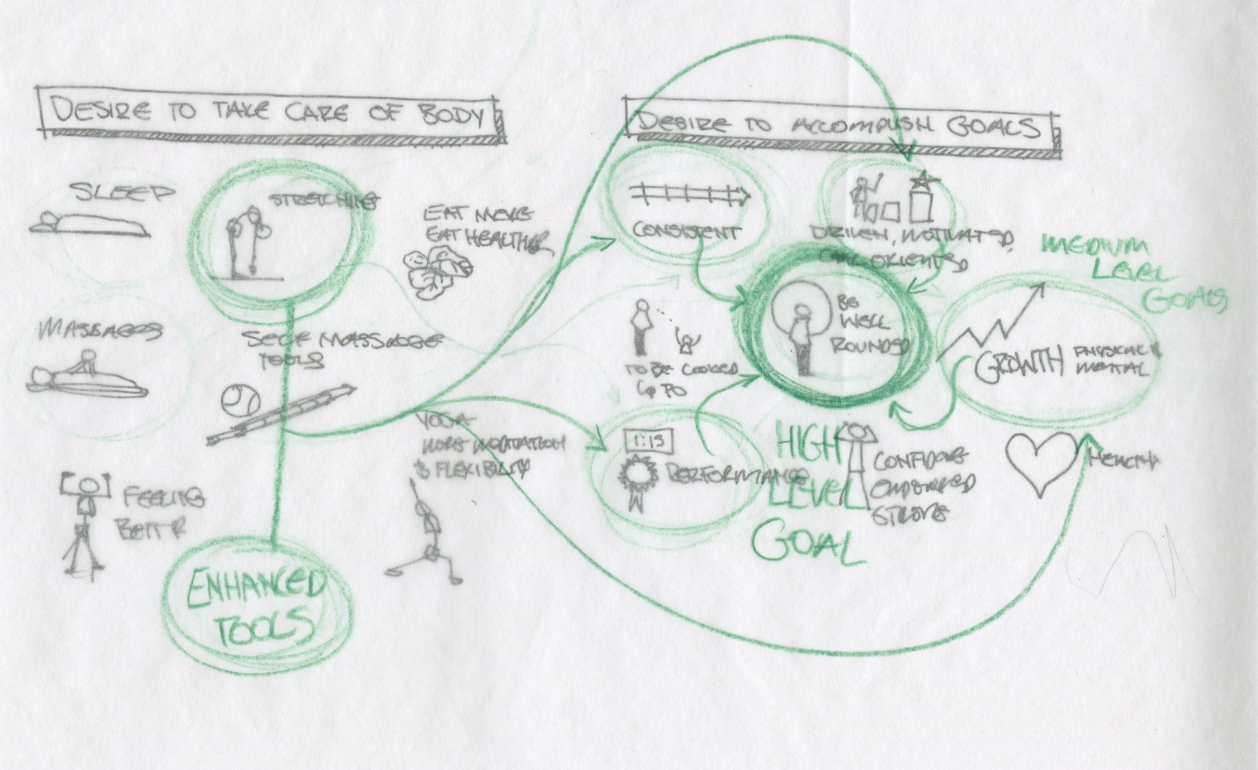 DESIRE TO TAKE CARE OF BODY
DESIRE TO ACCOMPLISH GOALS
SLEEP
STRETCHING
EAT MORE
EAT HEALTHIER
MASSAGES
SELF MASSAGE
TOOLS
FEELING
BETTER
YOGA
MORE MEDITATION
& FLEXIBILITY
ENHANCED
TOOLS
CONSISTENT
DRIVEN, MOTIVATED,
GOAL ORIENTED
MEDIUM
LEVEL
GOALS
BE
WELL
ROUNDED
TO BE LOOKED
UP TO
GROWTH PHYSICAL &
MENTAL
1:15
PERFORMANCE
HIGH
LEVEL
GOAL
STRONG
HEALTH